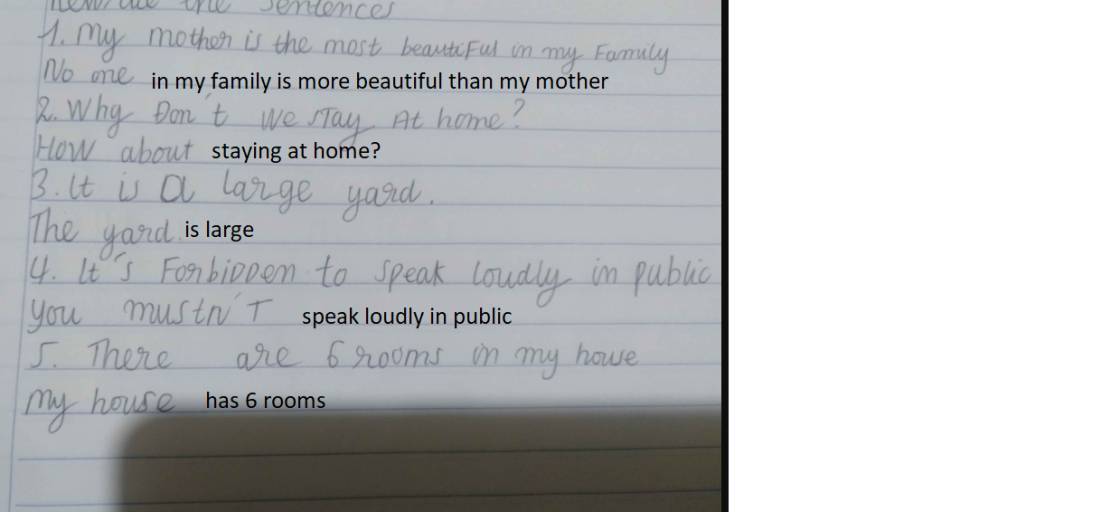 the sentences
1. My mother is the most beautiful in my Family
No one in my family is more beautiful than my mother
2. Why Don't we stay At home?
How about staying at home?
3. It is a large yard.
The yard is large
4. It's Forbidden to speak loudly in public
you mustn't speak loudly in public
5. There are 6 rooms in my house
my house has 6 rooms